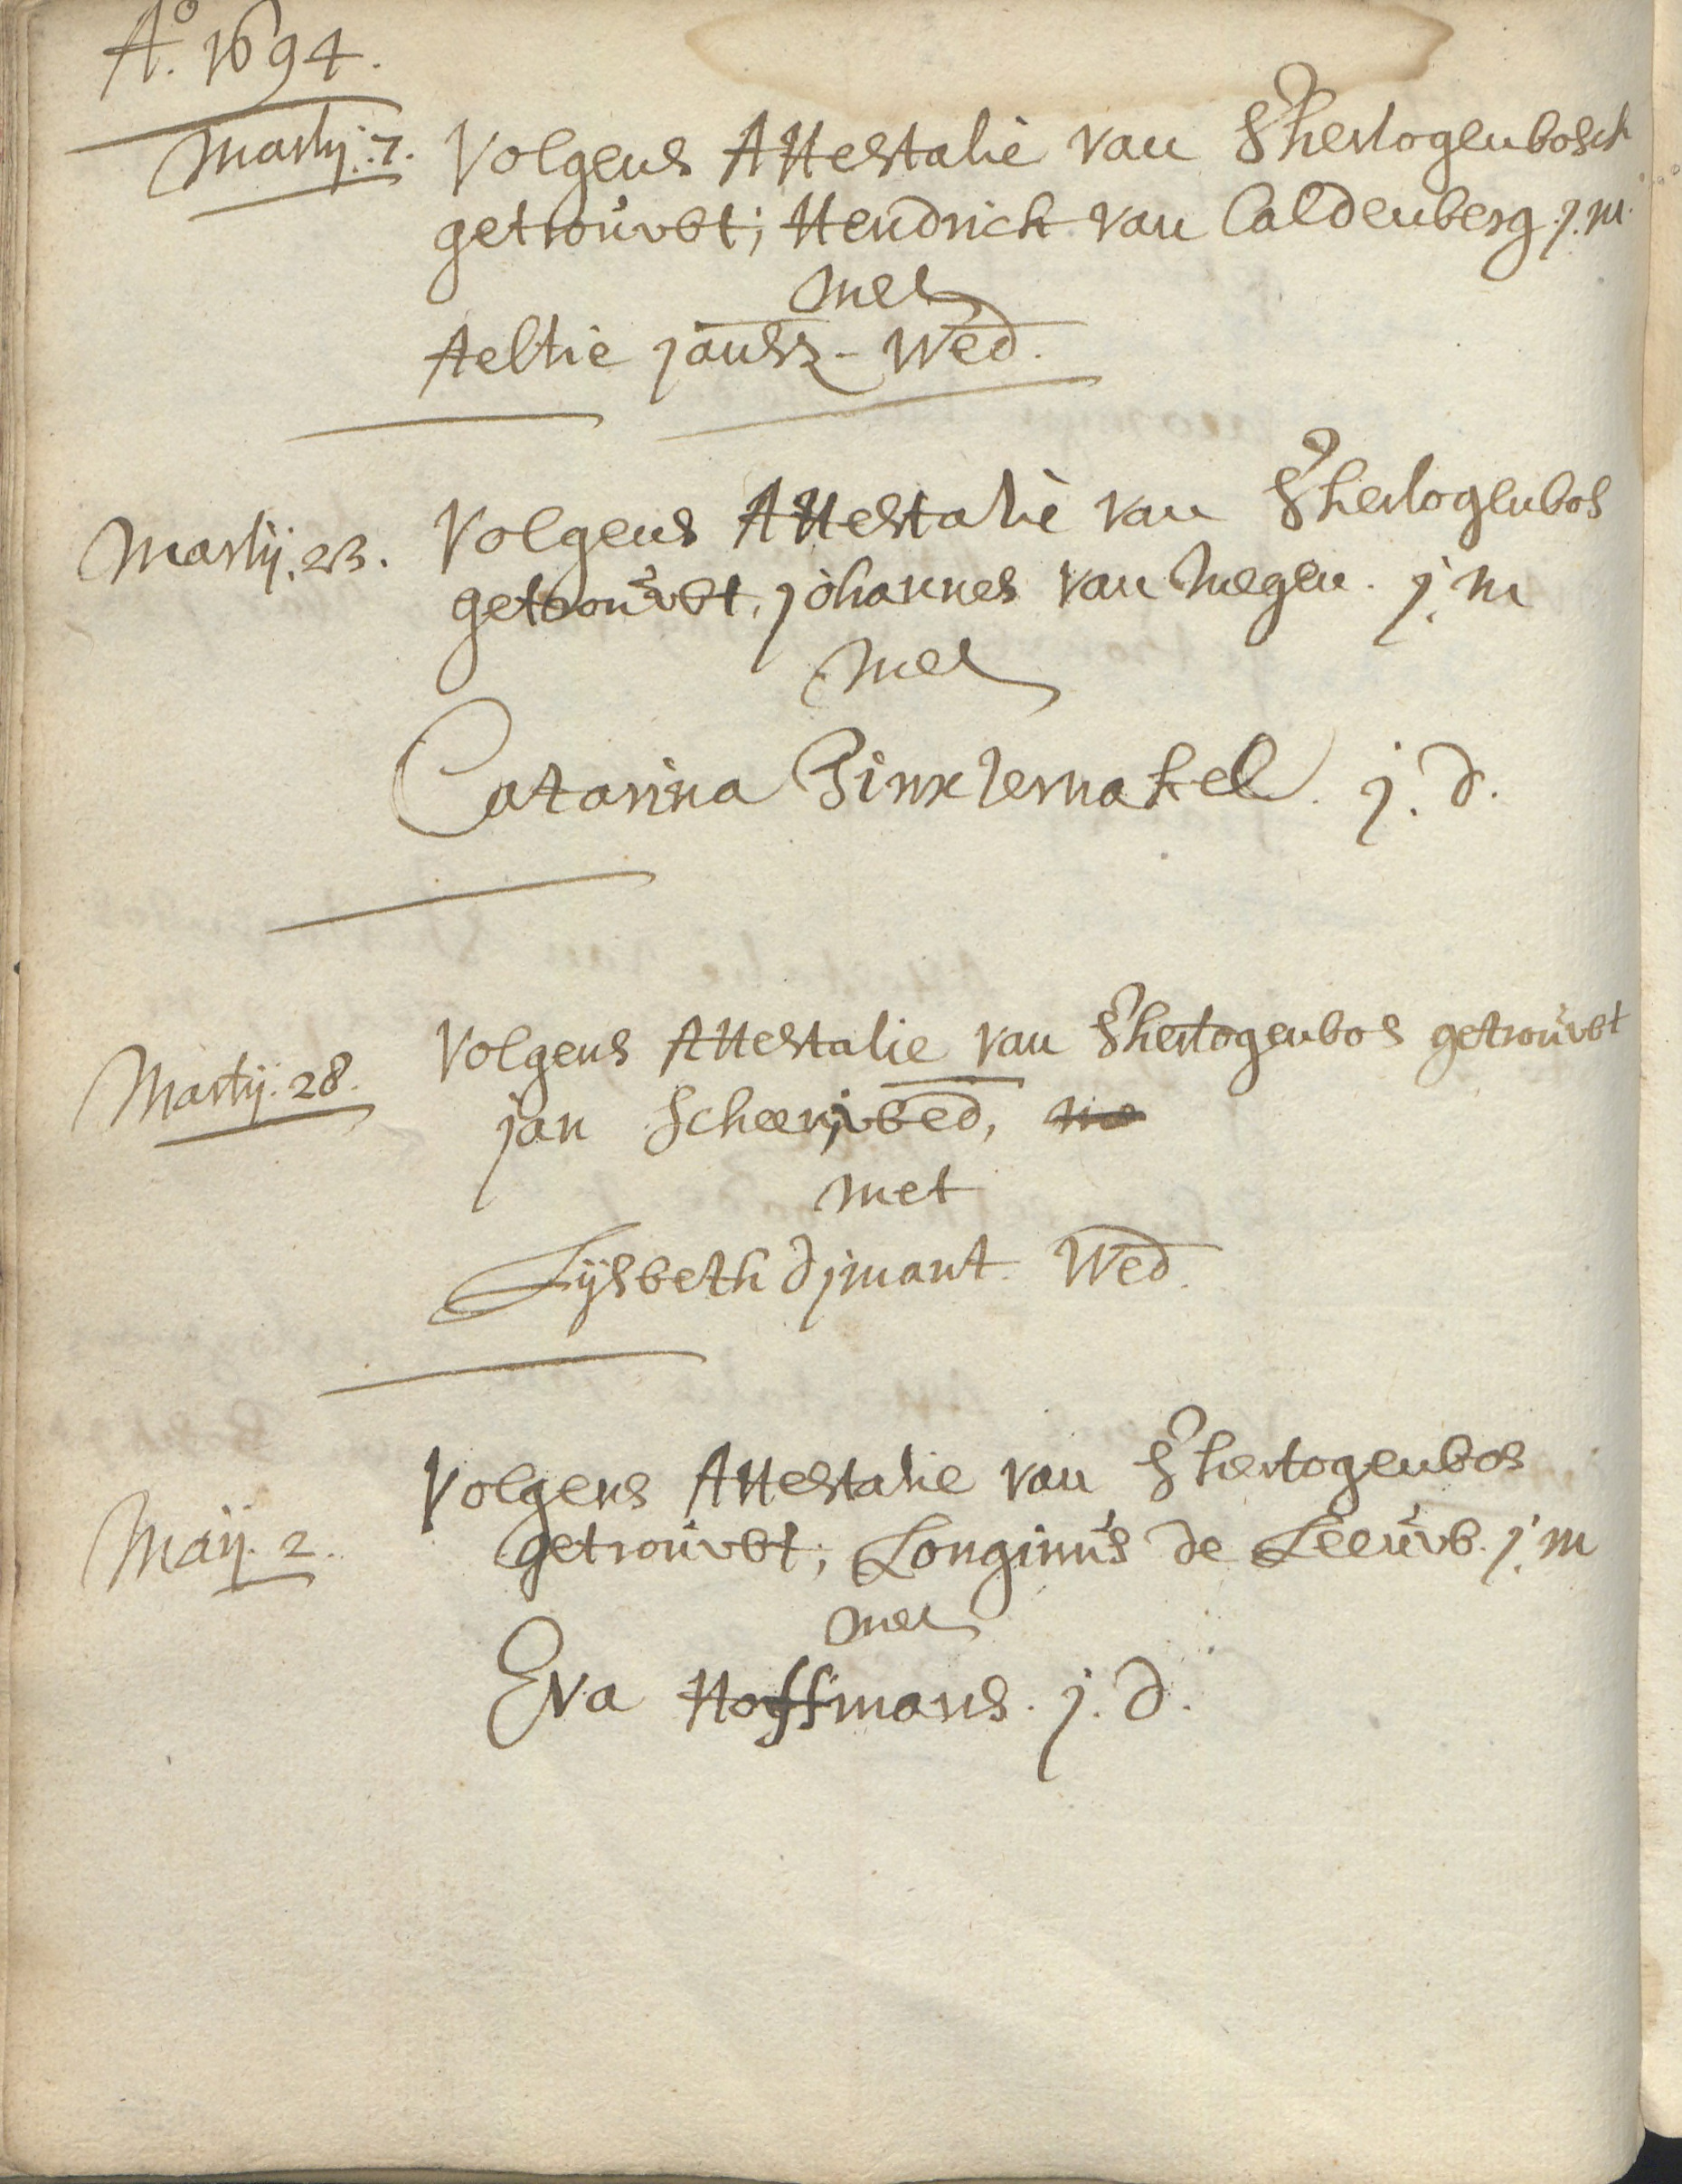 Ao. 1694.
Martij. 7. Volgens Attestatie van S'hertogenbosch
getrouwt; Hendrick van Caldenberg. j.m.
met
Aeltie jansz - Wed.
Martij. 23. Volgens Attestatie van S'hertogenbos
getrouwt, johannes van Megen. j.m
met
Catarina Pinxternakel. j.d.
Martij. 28. Volgens Attestatie van S'hertogenbos getrouwt
jan Scheer, wed,
met
Lijsbeth djmant. Wed.
Maij. 2. Volgens Attestatie van S'hertogenbos
getrouwt, Longinus de Leeuw. j.m
met
Eva Hoffmans. j.d.